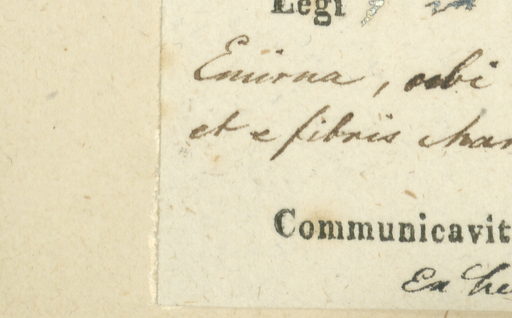 Legi
Emirna, ubi
et e fibris char
Communicavit
Ex he